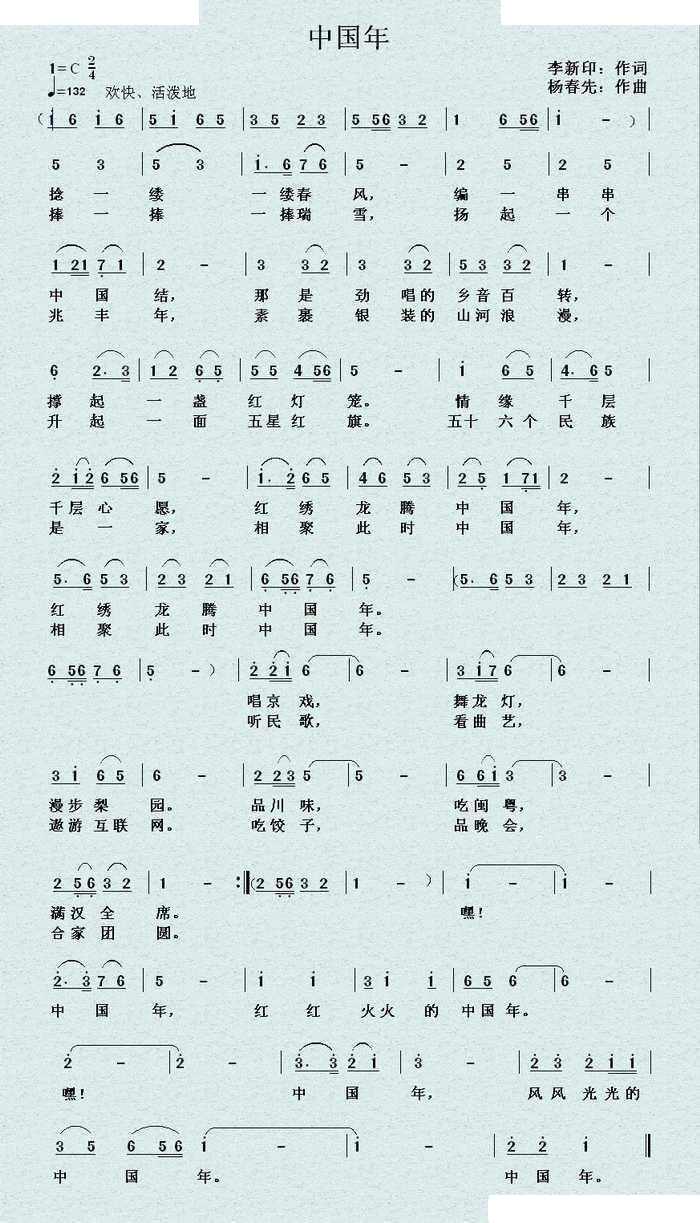 中国年
1=C 2/4
李新印：作词
♩=132 欢快、活泼地
杨春先：作曲
（1 6 i 6 | 5 i 6 5 | 3 5 2 3 | 5 56 3 2 | 1 6 56 | i - ）|
5 3 | 5 3 | i. 6 7 6 | 5 - | 2 5 | 2 5 |
捻 一 缕 一 缕春 风， 编 一 串 串
捧 一 捧 一 捧瑞 雪， 扬 起 一 个
1 21 7 1 | 2 - | 3 3 2 | 3 3 2 | 5 3 3 2 | 1 - |
中 国 结， 那 是 劲 唱的 乡音百 转，
兆 丰 年， 素 裹 银 装的 山河浪 漫，
6 2. 3 | 1 2 6 5 | 5 5 4 56 | 5 - | i 6 5 | 4. 6 5 |
撑 起 一 盏 红 灯 笼。 情 缘 千 层
升 起 一 面 五星红 旗。 五十 六个 民 族
2 i2 6 56 | 5 - | i. 2 6 5 | 4 6 5 3 | 2 5 1 71 | 2 - |
千层心 愿， 红 绣 龙 腾 中 国 年，
是 一 家， 相 聚 此 时 中 国 年，
5. 6 5 3 | 2 3 2 1 | 6 56 7 6 | 5 - |（5. 6 5 3 | 2 3 2 1 |
红 绣 龙 腾 中 国 年。
相 聚 此 时 中 国 年。
6 56 7 6 | 5 - ）| 2 2 i 6 | 6 - | 3 i7 6 | 6 - |
唱京 戏， 舞龙 灯，
听民 歌， 看曲 艺，
3 i 6 5 | 6 - | 2 23 5 | 5 - | 6 6i 3 | 3 - |
漫步梨 园。 品川 味， 吃闽 粤，
遨游互联 网。 吃饺 子， 品晚 会，
2 56 3 2 | 1 - :‖（2 56 3 2 | 1 - ）| i - | i - |
满汉全 席。 嘿！
合家团 圆。
2. 3 7 6 | 5 - | i i | 3 i i | 6 5 6 | 6 - |
中 国 年， 红 红 火火 的 中国年。
2 - | 2 - | 3. 3 2 i | 3 - | 2 3 2 i i |
嘿！ 中 国 年， 风风 光光的
3 5 6 56 | i - | i - | 2 2 i ‖
中 国 年。 中 国 年。